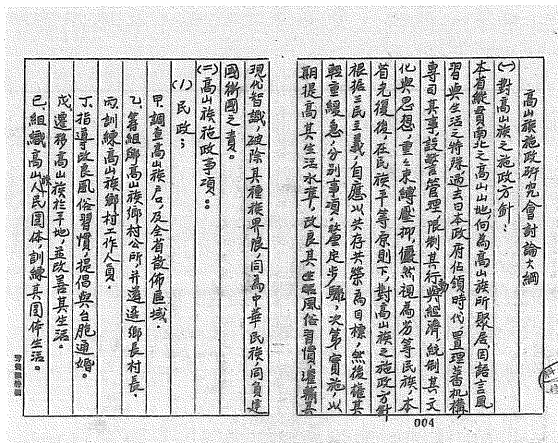 高山族施政研究會討論大綱
(一)對高山族之施政方針：
本省縱貫南北之高山山地向為高山族所聚居因語言風
習與生活之特殊過去日本政府佔領時代置理蕃机構，
專司其事，設警管理，限制其行與經濟，統制其文
化與思想，重之束縛壓抑，儼然視為劣等民族，本
首光復後，在民族平等原則下，對高山族之施政方針
根據三民主義，自應以共存共榮為目標，然後權其
輕重緩急，分别事項，釐定步驟，次第實施，以
期提高其生活水準，改良其生活風俗習慣，灌輸其
現代智識，破除其種族界限，同為中華民族同負建
國衛國之責。
(二)高山族施政事項：
(1)民政：
甲、調查高山族戶口及全省散佈區域。
乙、籌組鄉高山族鄉村公所并遴選鄉長村長。
丙、訓練高山族鄉村工作人員。
丁、指導改良風俗習慣，提倡與台胞通婚。
戊、遷移高山族於平地，並改善其生活。
己、組織高山族人民團体，訓練其團体生活。
004